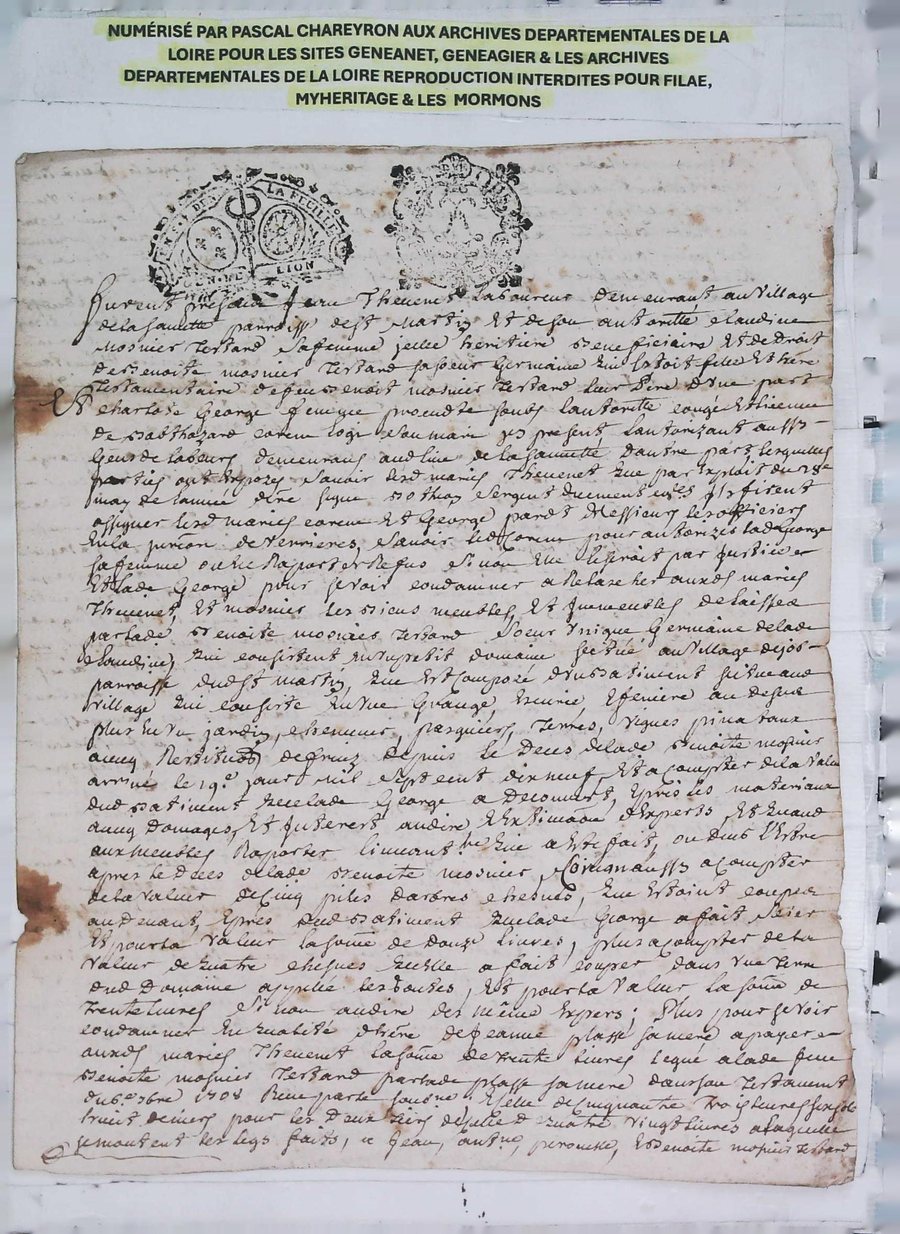 NUMÉRISÉ PAR PASCAL CHAREYRON AUX ARCHIVES DEPARTEMENTALES DE LA
LOIRE POUR LES SITES GENEANET, GENEAGIER & LES ARCHIVES
DEPARTEMENTALES DE LA LOIRE REPRODUCTION INTERDITES POUR FILAE,
MYHERITAGE & LES MORMONS
LA FEUILLE
LION
furent presens Jean Thevenet Laboureur demeurant au village
de la parroisse de st Martin Et de son autorité Claudine
mosnier tertard sa femme jcelle heritière beneficiaire Et de Droit
de benoite mosnier tertard sa soeur Germaine qui Estoit fille Et here
testamentaire de feu benoit mosnier tertard leur Père d'vne part
Et George femme soubs lautorité congé Et licence
de balthazard son mary present lautorizant aussy
Gens de labeurs demeurans aud lieu de la d'autre part, lesquelles
parties ont Exposez sauoir lesd mariés Thevenet que par Exploit du 28e
may de lannée dre signé sergent duement ils firent
assigner lesd mariés Et George pard Messieurs les officiers
En la jurion de verrieres, sauoir led pour autorizer lad George
sa femme ou En Raporter Refus sinon quil le seroit par justice
Et lade George pour se voir condamner a Relascher auxds mariés
Thevenet, Et mosnier les biens meubles, Et Immeubles delaissés
par lade benoite mosnier tertard soeur vnique Germaine de lade
Claudine, qui consistent En vn petit domaine scitué au village de
parroisse dud st martin, que Est composé d'vn batiment scitué aud
village qui consiste En vne Grange, Ecurie Et fenière au dessus
plus En vn jardin, chenevier, pasquiers, terres, vignes pinataux
auecq Restituon de fruiz depuis le Deces de lade benoite mosnier
arriué le 19e jour mil sept cent dix neuf, Et a compter de la valeur
dud batiment que lade George a Decouuert, Et pris les materiaux
auecq Domages, Et Interest au dire d'Experts, Et quand
aux meubles Raporter linuentre qui a Esté fait, ou deub l'Estre
apres le deces de lade benoite mosnier, Comme aussy a compter
de la valeur de Cinq piles d'arbres chesnes, que Estoint coupez
au deuant, Et pres dud batiment que lade George a fait scier
Et pour la valeur la somme de douze liures, plus a compter de la
valeur de quatre chesnes quelle a fait couper dans vne terre
dud Domaine appellée les Et pour la valeur la somme de
trente liures sinon au dire des meme Expers; Plus pour se voir
condamner En qualité d'here de jeanne plasse sa mere a payer
auxds mariés Thevenet la some de trente liures legué a lade feue
benoite mosnier tertard par lade plasse sa mere dans son testament
du 1708 Receu par Et celle de Cinquante trois liures six sols
huit deniers pour les deux tiers de celle de quatre vingt liures a laquelle
se montent les legs faits, a jean, Et benoite mosnier tertard